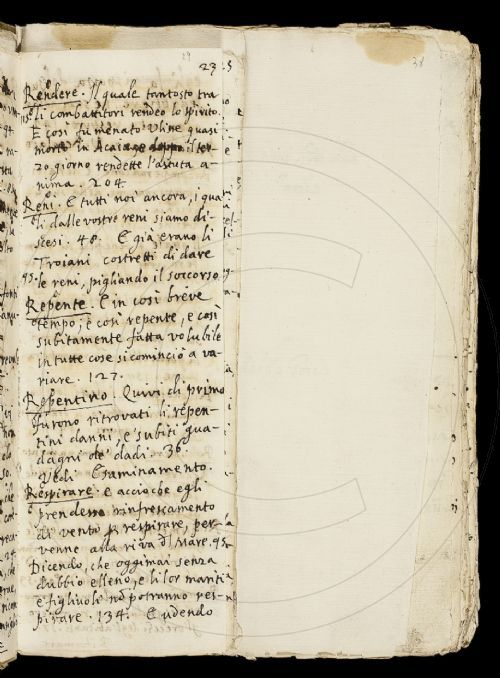 23
Rendere. Il quale tantosto tra
li combattitori rendeo lo spirito.
E così fu menato Vline quasi
morto in Acaia, e doppo il ter-
zo giorno rendette l'astuta a-
nima. 204.
Reni. E tutti noi ancora, i qua
li dalle vostre reni siamo di-
scesi. 48. E già erano li
Troiani costretti di dare
95. le reni, pigliando il soccorso
Repente. E in così breve
tempo, e così repente, e così
subitamente fatta volubile
in tutte cose si cominciò a va-
riare. 127.
Repentino. Quivi di primo
furono ritrovati li repen-
tini danni, e subiti gua-
dagni de dadi. 36.
Vedi Esaminamento.
Respirare. e accioche egli
prendessa rinfrescamento
di vento p respirare, per-
venne alla riva dl Mare. 95.
Dicendo, che oggimai senza
dubbio elleno, e li lor mariti
e figliuole nō potranno res-
pirare. 134. E udendo
38